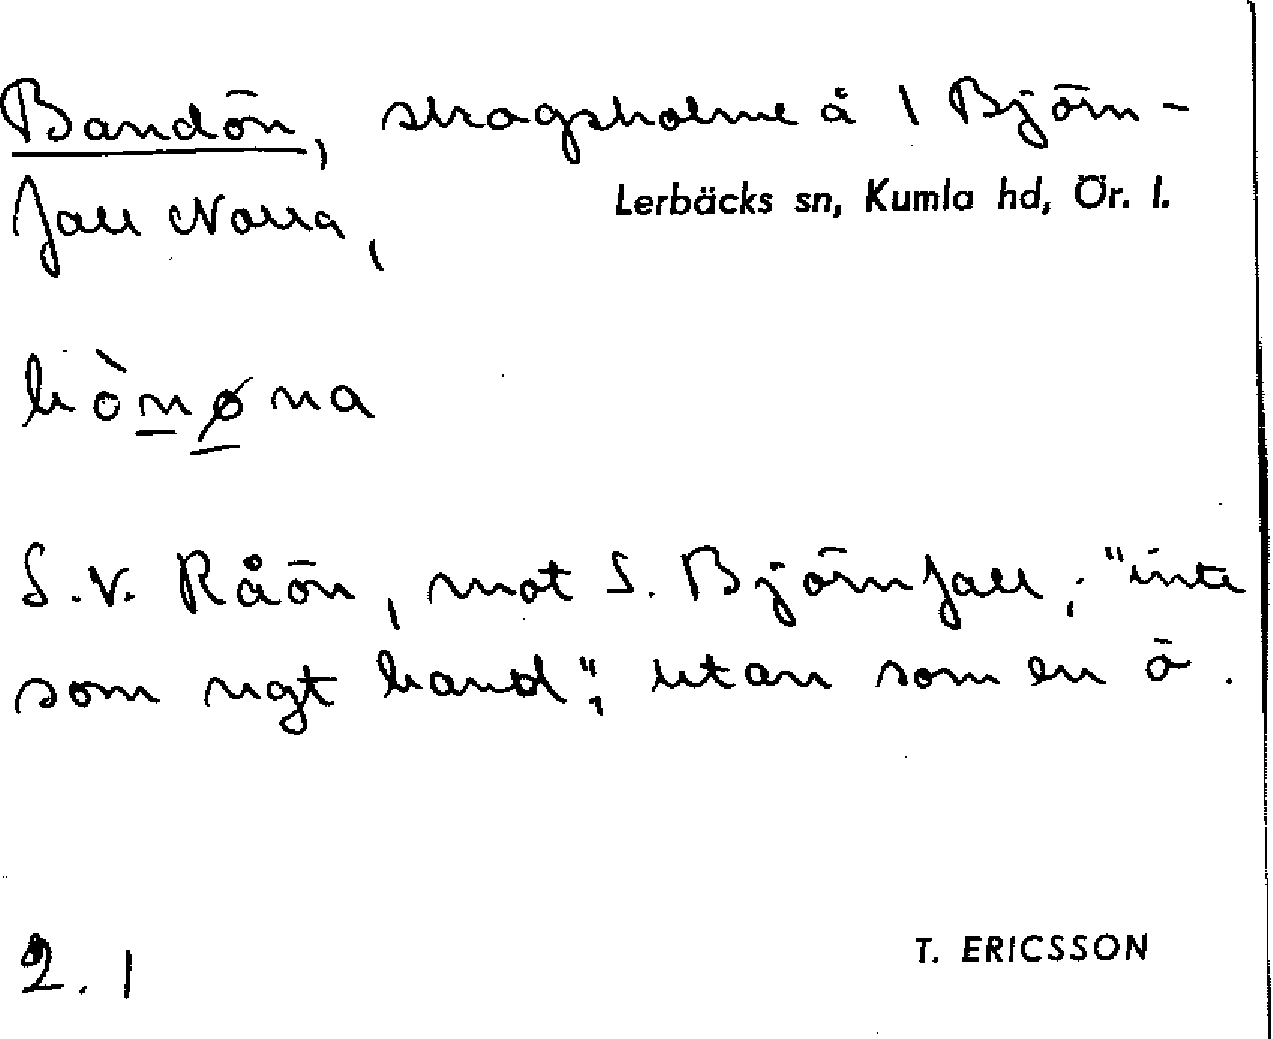 Bandön, skogsholme å 1 Björn-
fall Norra,
Lerbäcks sn, Kumla hd, Ör. l.
bònøna
S.V. Råön, mot S. Björnfall; "inte
som nogt band", utan som en ö.
2. 1
T. ERICSSON